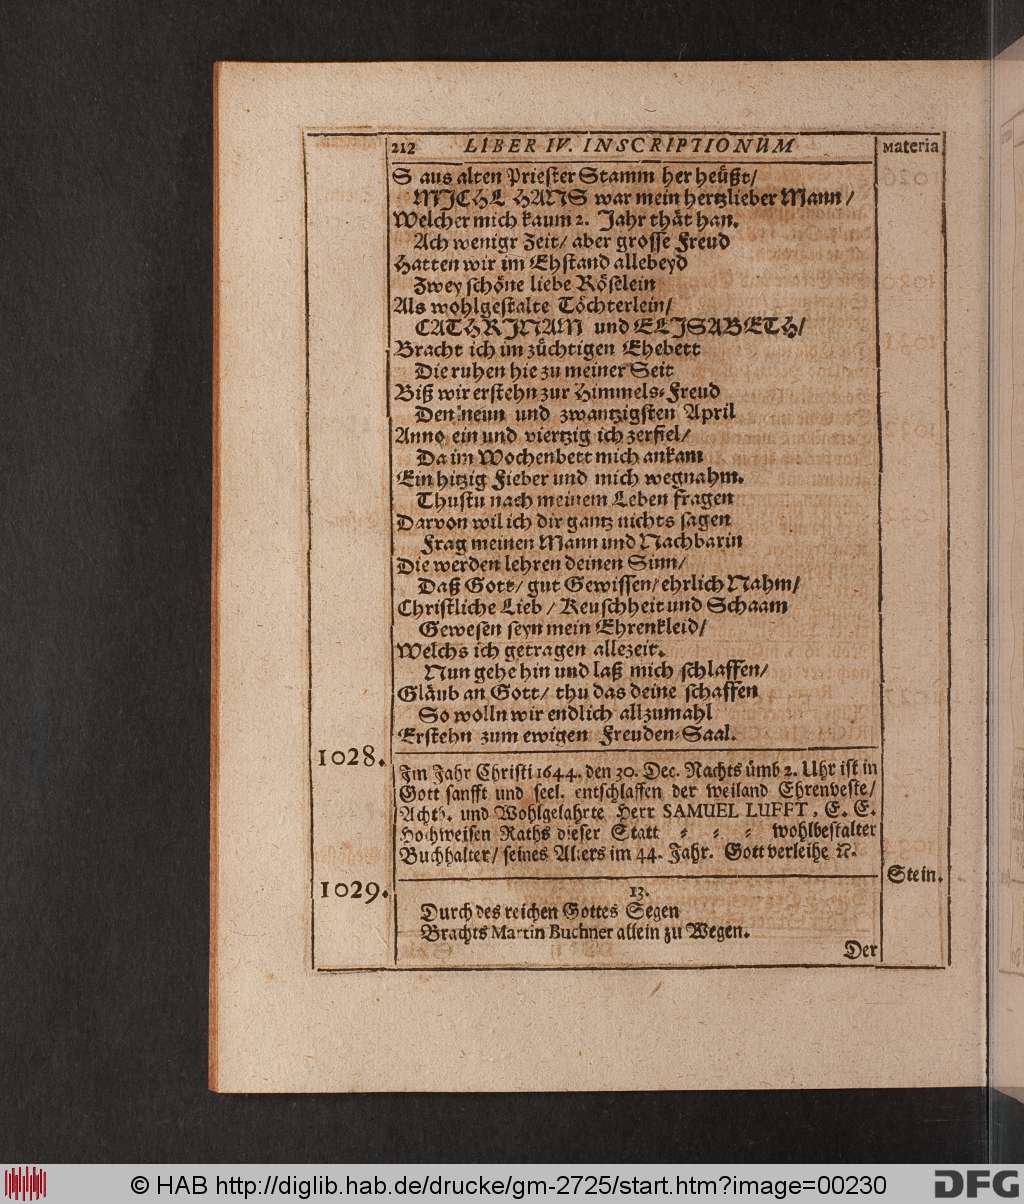 212 LIBER IV. INSCRIPTIONUM Materia
S aus alten Priester Stamm her heüßt/
MICHL HANS war mein hertzlieber Mann /
Welcher mich kaum 2. Jahr thät han.
Ach wenigr Zeit/ aber grosse Freud
Hatten wir im Ehstand allebeyd
Zwey schöne liebe Röselein
Als wohlgestalte Töchterlein/
CATHRINAM und ELISABETH/
Bracht ich im züchtigen Ehebett
Die ruhen hie zu meiner Seit
Biß wir erstehn zur Himmels-Freud
Den neun und zwantzigsten April
Anno ein und viertzig ich zerfiel/
Da im Wochenbett mich ankam
Ein hitzig Fieber und mich wegnahm.
Thustu nach meinem Leben fragen
Darvon wil ich dir gantz nichts sagen
Frag meinen Mann und Nachbarin
Die werden lehren deinen Sinn/
Daß Gott/ gut Gewissen/ ehrlich Nahm/
Christliche Lieb / Keuschheit und Schaam
Gewesen seyn mein Ehrenkleid/
Welchs ich getragen allezeit.
Nun gehe hin und laß mich schlaffen/
Gläub an Gott/ thu das deine schaffen
So wolln wir endlich allzumahl
Erstehn zum ewigen Freuden-Saal.
1028.
Im Jahr Christi 1644. den 30. Dec. Nachts ümb 2. Uhr ist in
Gott sanfft und seel. entschlaffen der weiland Ehrenveste/
Achtb. und Wohlgelahrte Herr SAMUEL LUFFT, E. E.
Hochweisen Raths dieser Statt - - - wohlbestalter
Buchhalter/ seines Alters im 44. Jahr. Gott verleihe N.
Stein.
1029.
13.
Durch des reichen Gottes Segen
Brachts Martin Buchner allein zu Wegen.
Der
© HAB http://diglib.hab.de/drucke/gm-2725/start.htm?image=00230
DFG